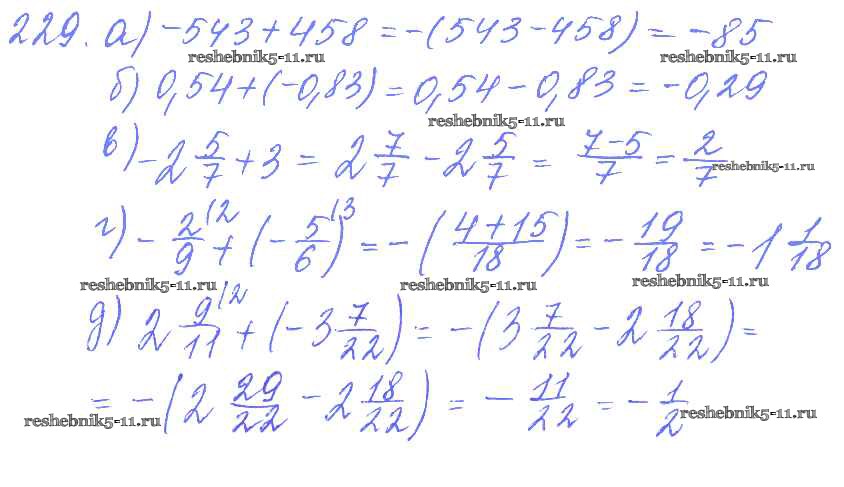 229. а) -543 + 458 = -(543 - 458) = -85
reshebnik5-11.ru reshebnik5-11.ru
б) 0,54 + (-0,83) = 0,54 - 0,83 = -0,29
reshebnik5-11.ru
в) -2 5/7 + 3 = 2 7/7 - 2 5/7 = (7-5)/7 = 2/7
reshebnik5-11.ru
г) - 2/9 |2 + (- 5/6) |3 = -((4+15)/18) = - 19/18 = -1 1/18
reshebnik5-11.ru reshebnik5-11.ru reshebnik5-11.ru
д) 2 9/11 |2 + (-3 7/22) = -(3 7/22 - 2 18/22) =
= -(2 29/22 - 2 18/22) = - 11/22 = - 1/2
reshebnik5-11.ru reshebnik5-11.ru